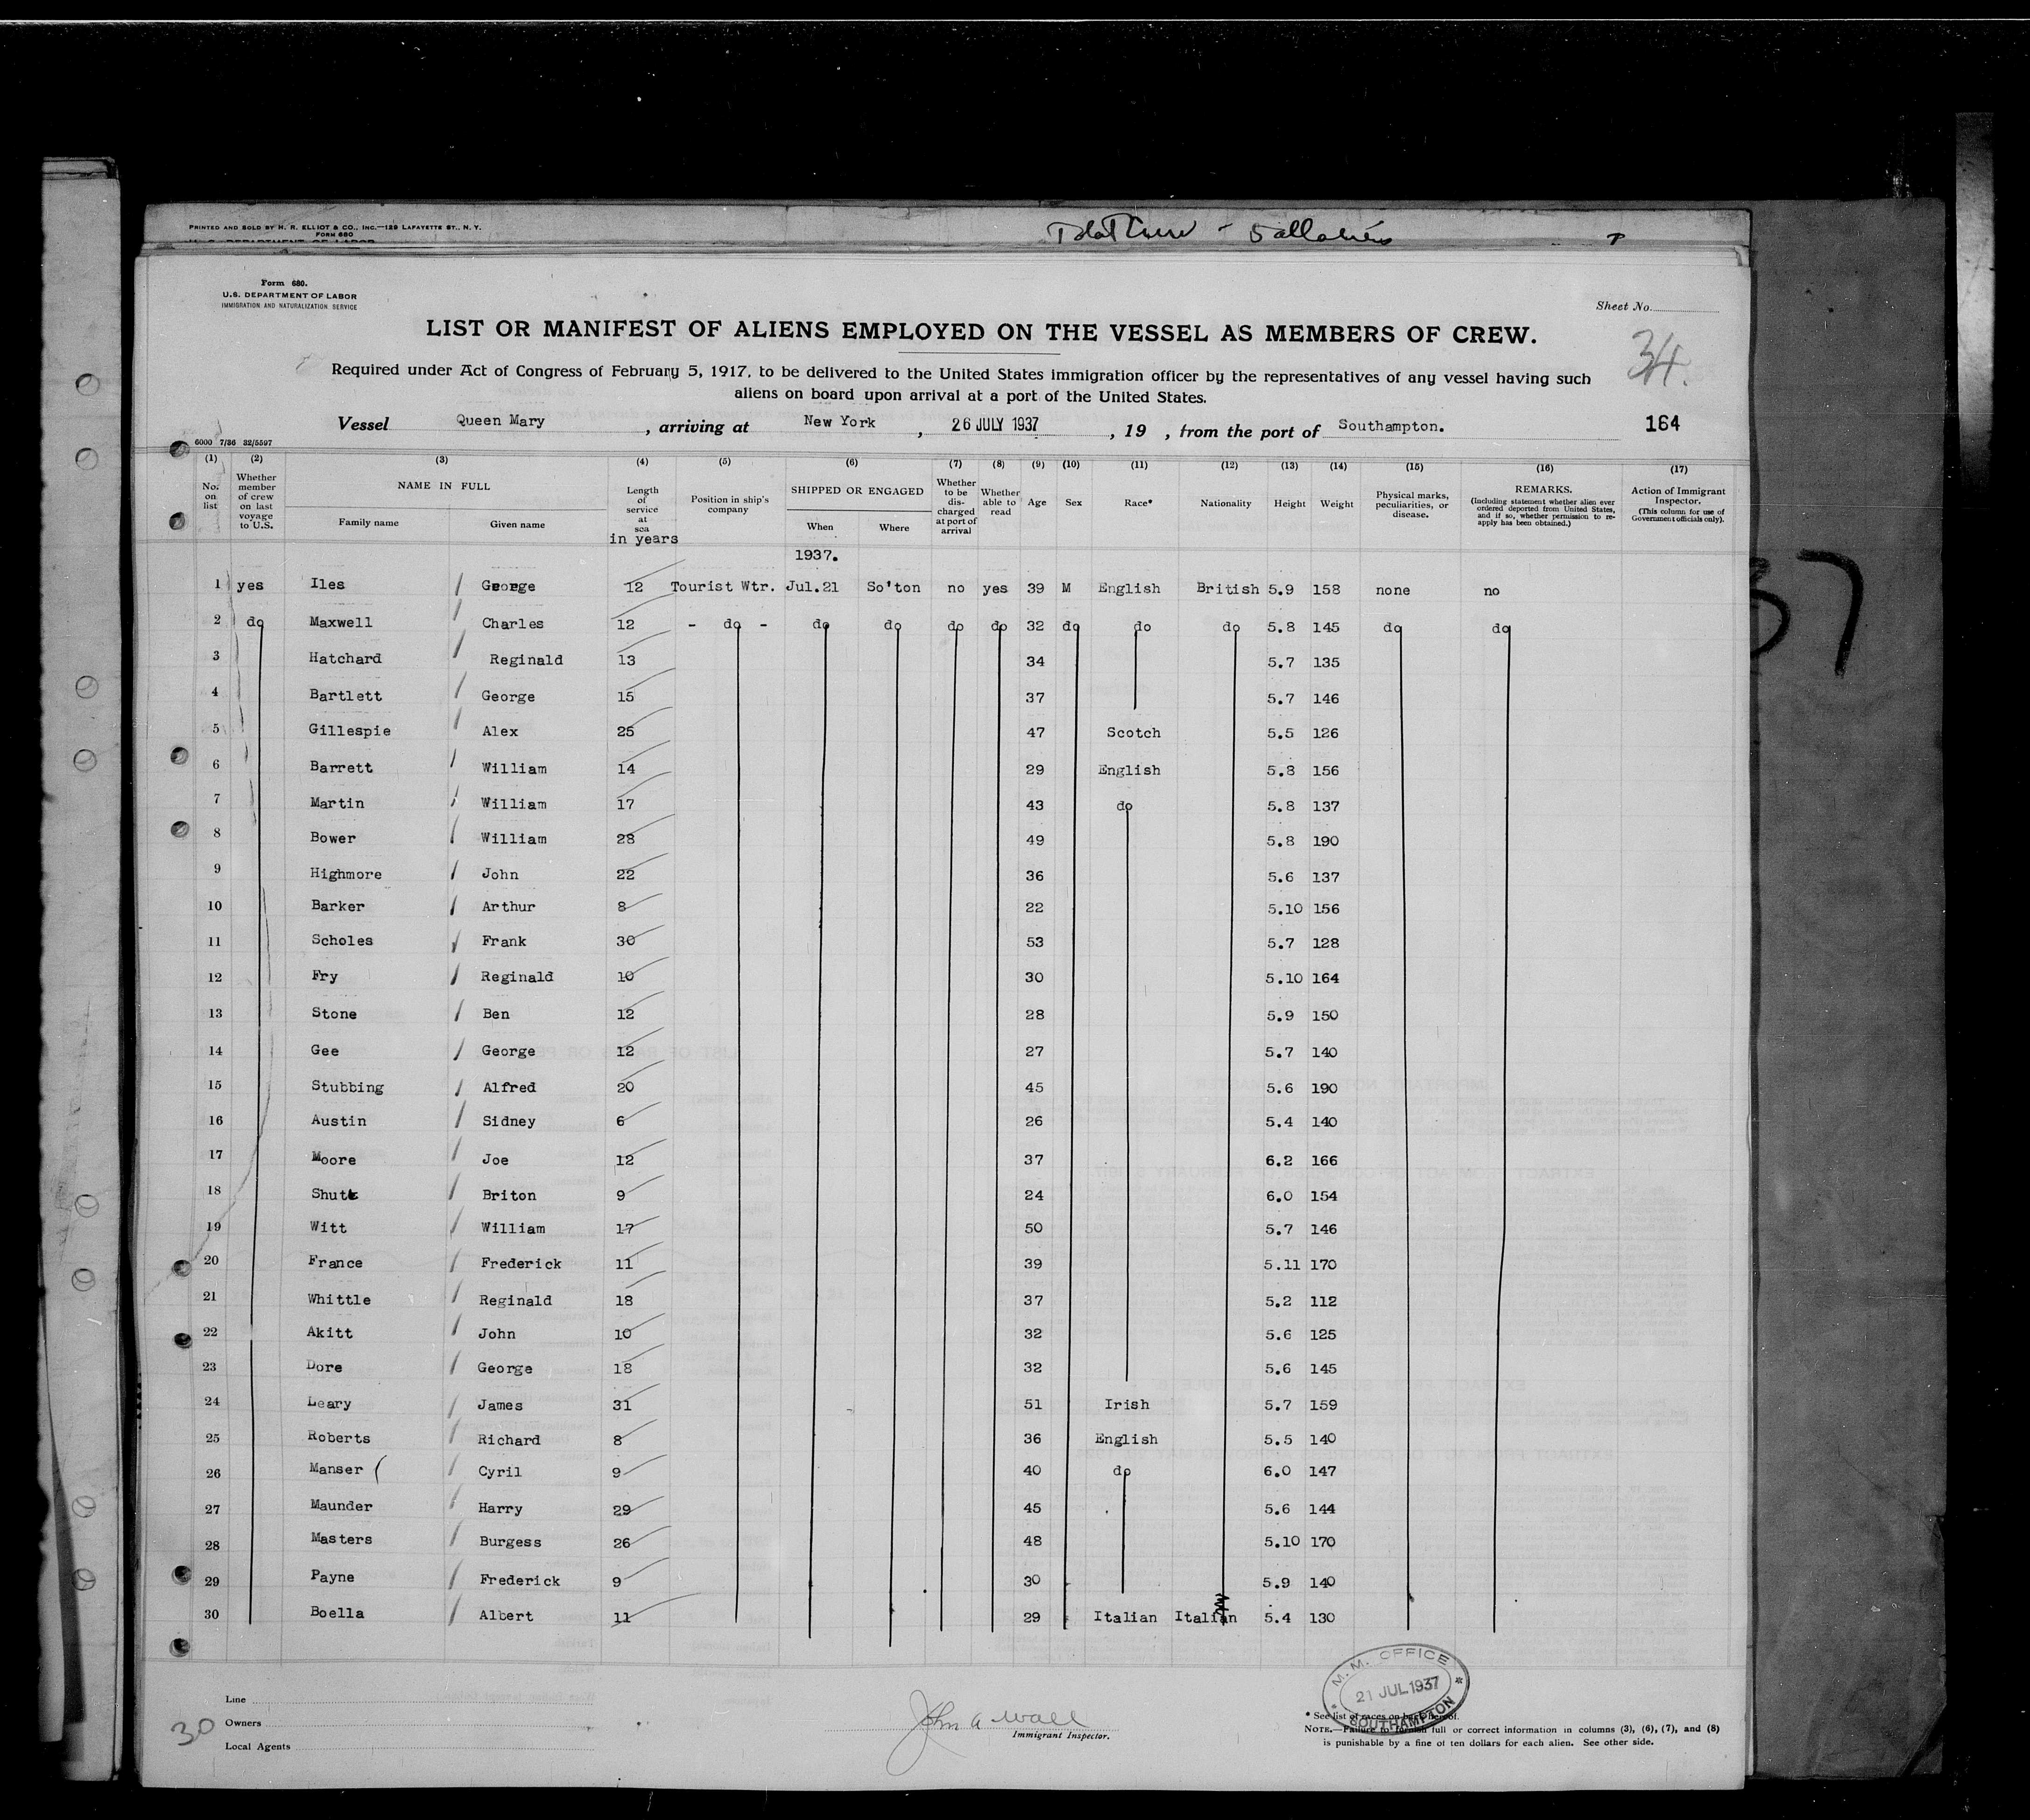 PRINTED AND SOLD BY H. R. ELLIOT & CO., INC.—129 LAFAYETTE ST., N. Y.
FORM 680
U. S. DEPARTMENT OF LABOR
Form 680.
U.S. DEPARTMENT OF LABOR
IMMIGRATION AND NATURALIZATION SERVICE
Sheet No.
LIST OR MANIFEST OF ALIENS EMPLOYED ON THE VESSEL AS MEMBERS OF CREW.
34.
Required under Act of Congress of February 5, 1917, to be delivered to the United States immigration officer by the representatives of any vessel having such
aliens on board upon arrival at a port of the United States.
Vessel Queen Mary, arriving at New York, 26 JULY 1937, 19 , from the port of Southampton. 164
6000 7/36 32/5597
(1) (2) (3) (4) (5) (6) (7) (8) (9) (10) (11) (12) (13) (14) (15) (16) (17)
No. on list
Whether member of crew on last voyage to U.S.
NAME IN FULL
Family name Given name
Length of service at sea
in years
Position in ship's company
SHIPPED OR ENGAGED
When Where
Whether to be discharged at port of arrival
Whether able to read
Age Sex Race* Nationality Height Weight
Physical marks, peculiarities, or disease.
REMARKS.
(Including statement whether alien ever ordered deported from United States, and if so, whether permission to reapply has been obtained.)
Action of Immigrant Inspector.
(This column for use of Government officials only).
1937.
1 yes Iles George 12 Tourist Wtr. Jul.21 So'ton no yes 39 M English British 5.9 158 none no
2 do Maxwell Charles 12 - do - do do do do 32 do do do 5.8 145 do do
3 Hatchard Reginald 13 34 5.7 135
4 Bartlett George 15 37 5.7 146
5 Gillespie Alex 25 47 Scotch 5.5 126
6 Barrett William 14 29 English 5.8 156
7 Martin William 17 43 do 5.8 137
8 Bower William 28 49 5.8 190
9 Highmore John 22 36 5.6 137
10 Barker Arthur 8 22 5.10 156
11 Scholes Frank 30 53 5.7 128
12 Fry Reginald 10 30 5.10 164
13 Stone Ben 12 28 5.9 150
14 Gee George 12 27 5.7 140
15 Stubbing Alfred 20 45 5.6 190
16 Austin Sidney 6 26 5.4 140
17 Moore Joe 12 37 6.2 166
18 Shutt Briton 9 24 6.0 154
19 Witt William 17 50 5.7 146
20 France Frederick 11 39 5.11 170
21 Whittle Reginald 18 37 5.2 112
22 Akitt John 10 32 5.6 125
23 Dore George 18 32 5.6 145
24 Leary James 31 51 Irish 5.7 159
25 Roberts Richard 8 36 English 5.5 140
26 Manser ( Cyril 9 40 do 6.0 147
27 Maunder Harry 29 45 5.6 144
28 Masters Burgess 26 48 5.10 170
29 Payne Frederick 9 30 5.9 140
30 Boella Albert 11 29 Italian Italian 5.4 130
M. M. OFFICE
21 JUL 1937
SOUTHAMPTON
Line
Owners
Local Agents
30
John A Wall
Immigrant Inspector.
* See list of races on back hereof.
NOTE.—Failure to furnish full or correct information in columns (3), (6), (7), and (8)
is punishable by a fine of ten dollars for each alien. See other side.
37